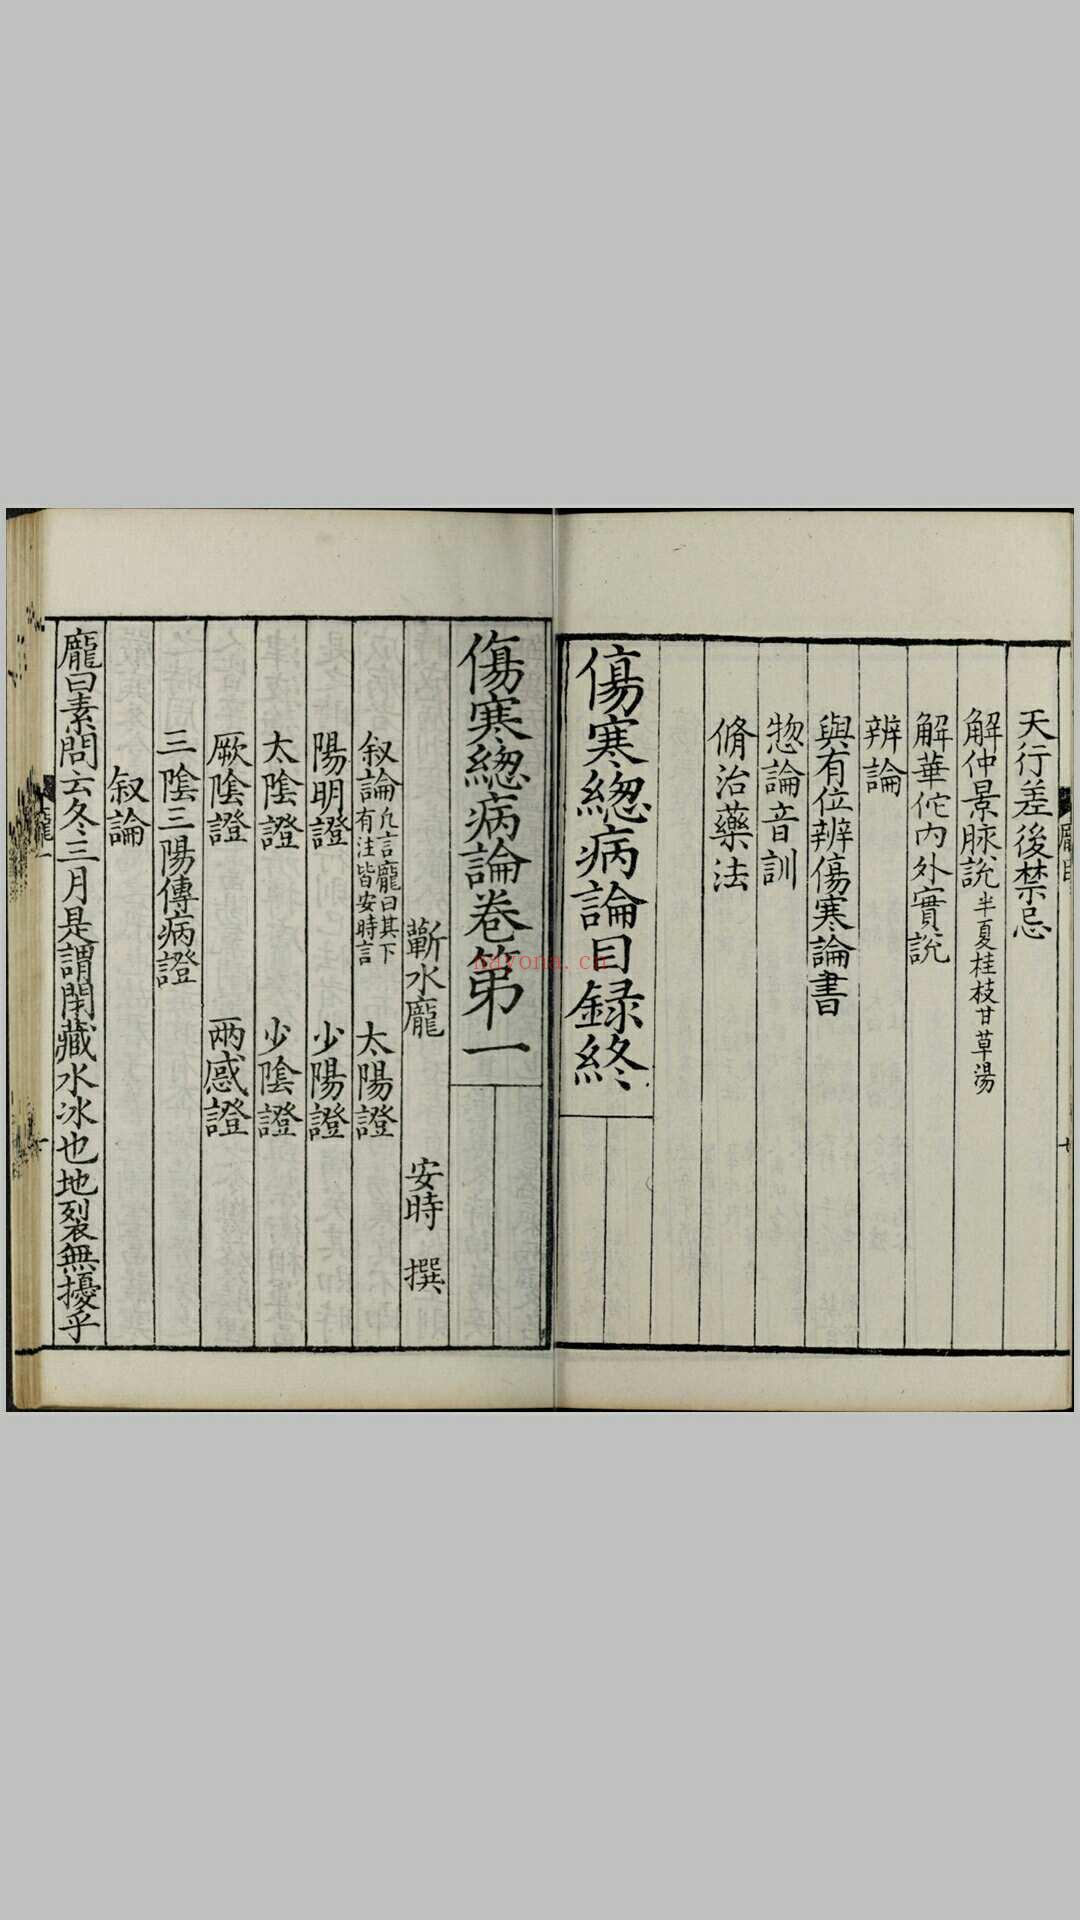 天行差後禁忌
解仲景脉說半夏桂枝甘草湯
解華佗內外實說
辨論
與有位辨傷寒論書
惣論音訓
脩治藥法
傷寒緫病論目録終
傷寒緫病論卷第一
蘄水龐 安時 撰
叙論凢言龐曰其下有注皆安時言 太陽證
陽明證 少陽證
太陰證 少陰證
厥陰證 兩感證
三陰三陽傳病證
叙論
龐曰素問云冬三月是謂閉藏水冰也地裂無擾乎
nayona.cn